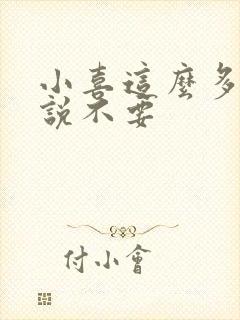 小喜這麼多
說不要
付小會